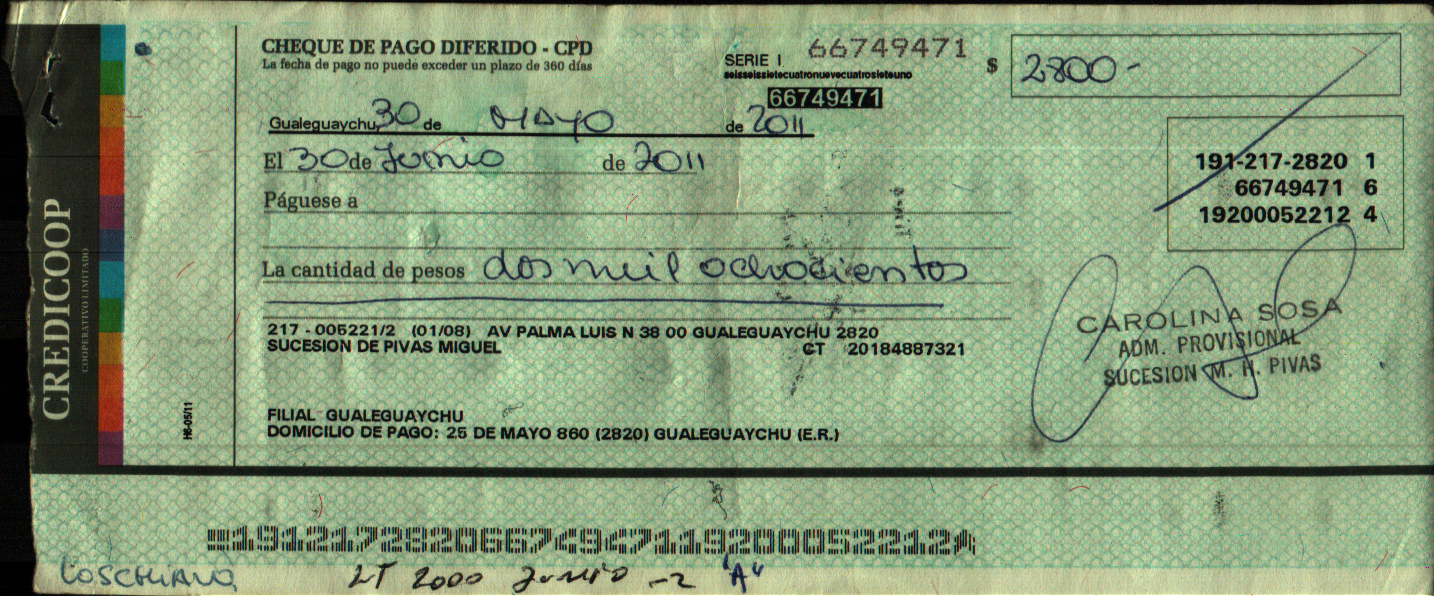 CREDICOOP
COOPERATIVO LIMITADO
H6-05/11
CHEQUE DE PAGO DIFERIDO - CPD
La fecha de pago no puede exceder un plazo de 360 días
SERIE I 66749471
seisseissietecuatronuevecuatrosieteuno
66749471
$ 2800-
Gualeguaychu, 30 de MAYO de 2011
El 30 de Junio de 2011
191-217-2820 1
66749471 6
19200052212 4
Páguese a
La cantidad de pesos dos mil ochocientos
217 - 005221/2 (01/08) AV PALMA LUIS N 38 00 GUALEGUAYCHU 2820
SUCESION DE PIVAS MIGUEL CT 20184887321
CAROLINA SOSA
ADM. PROVISIONAL
SUCESION M. H. PIVAS
FILIAL GUALEGUAYCHU
DOMICILIO DE PAGO: 25 DE MAYO 860 (2820) GUALEGUAYCHU (E.R.)
19121728206674947119200052212
LT 2000 Junio -2 "A"